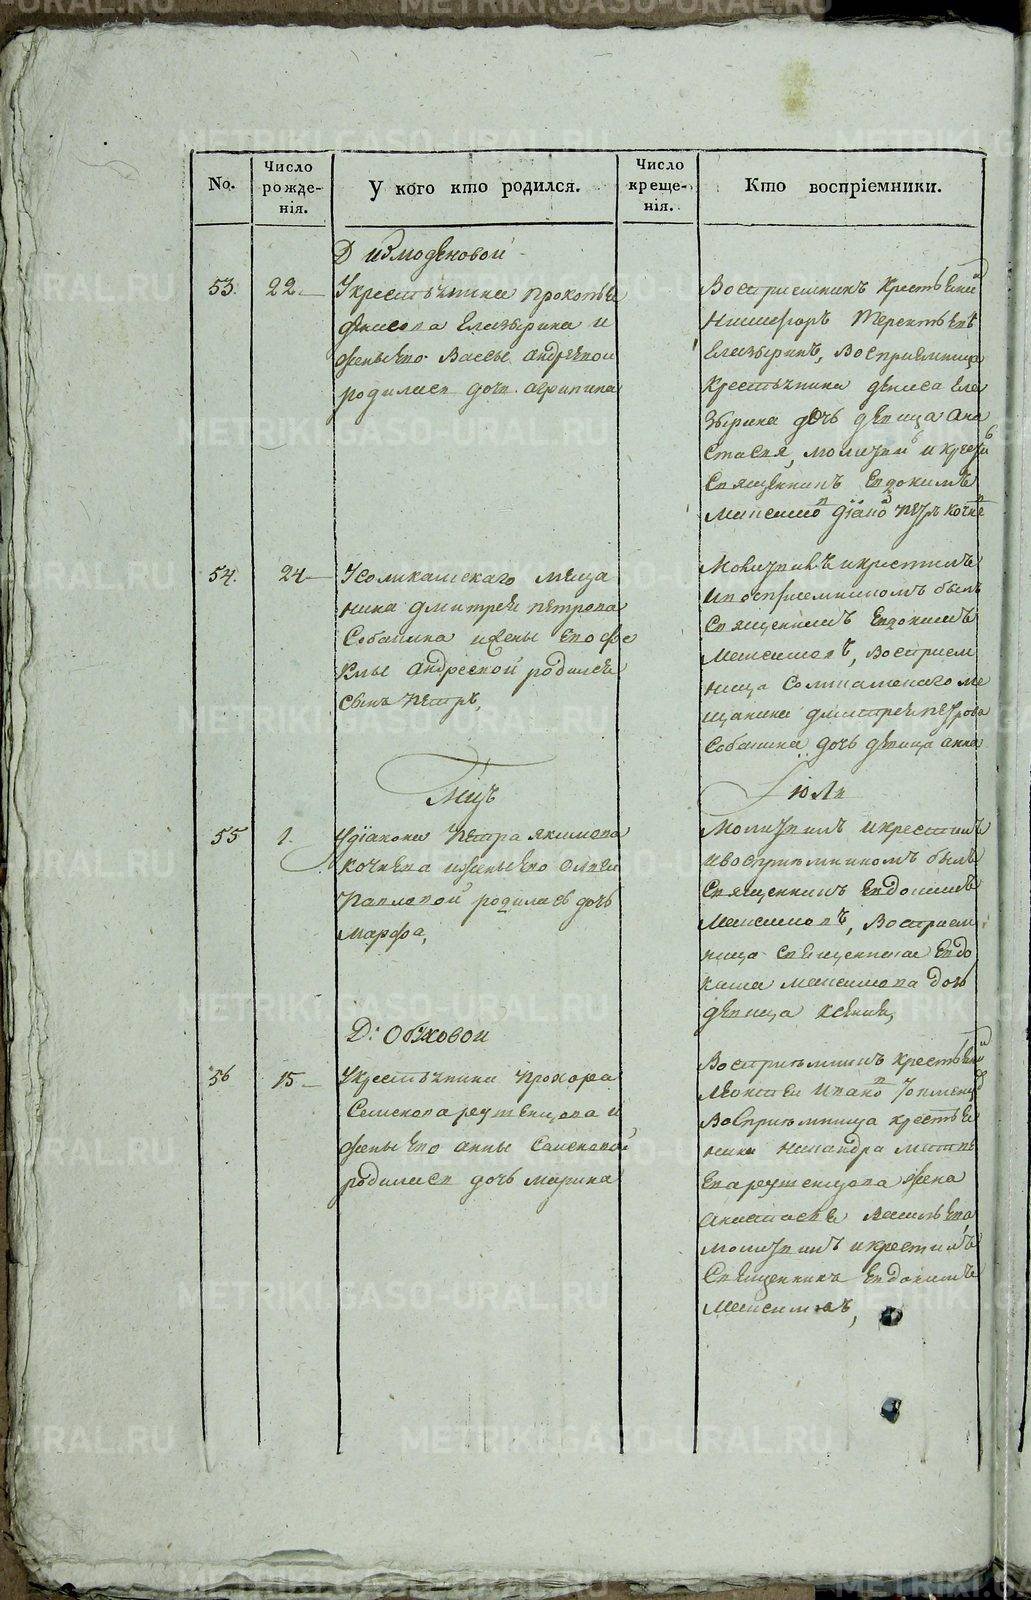 No.
Число рожде-нія.
У кого кто родился.
Число креще-нія.
Кто воспріемники.
Д измоденовой
53.
22
У крестьянина Прокопья
денисова Елазырина и
жены ево Вассы андреевой
родилась дочь агрипина
Восприемникъ крестьянинъ
Никифоръ Терентьевъ
Елазыринъ, восприемница
крестьянина дениса Ела
зырина дочь девица ана
стасия, молитвилъ и крестилъ
священникъ Евдокимъ
Максимовъ діаконъ Петръ кочневъ
54.
24
У соликамскаго меща
нина дмитрея петрова
Собашина и жены ево фе
клы андреевой родился
сынъ Петръ,
Молитвилъ и крестилъ
и восприемникомъ былъ
священникъ Евдокимъ
Максимовъ, восприем
ница соликамскаго ме
щанина дмитрея петрова
Собашина дочь девица анна
Мцъ
Июль
55
1.
У діакона Петра якимова
кочнева и жены ево
Павловой родилась дочь
марфа,
Молитвилъ и крестилъ
и восприемникомъ былъ
священникъ Евдокимъ
Максимовъ, восприем
ница священника Евдо
кима максимова дочь
девица ксения,
Д: Обжовой
56
15
У крестьянина Прохора
Семенова реутенцова и
жены ево анны Семеновой
родилась дочь марина
Восприемникъ крестьянинъ
восприемница крестья
нина Никандра
реутенцова жена
анастасия
молитвилъ и крестилъ
священникъ Евдокимъ
Максимовъ,
METRIKI.GASO-URAL.RU